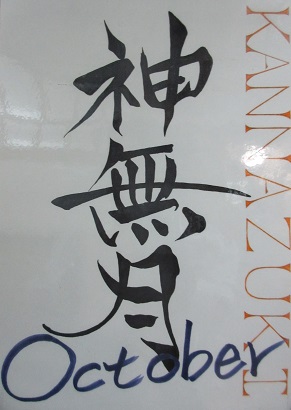 神無月
KANNAZUKI
October